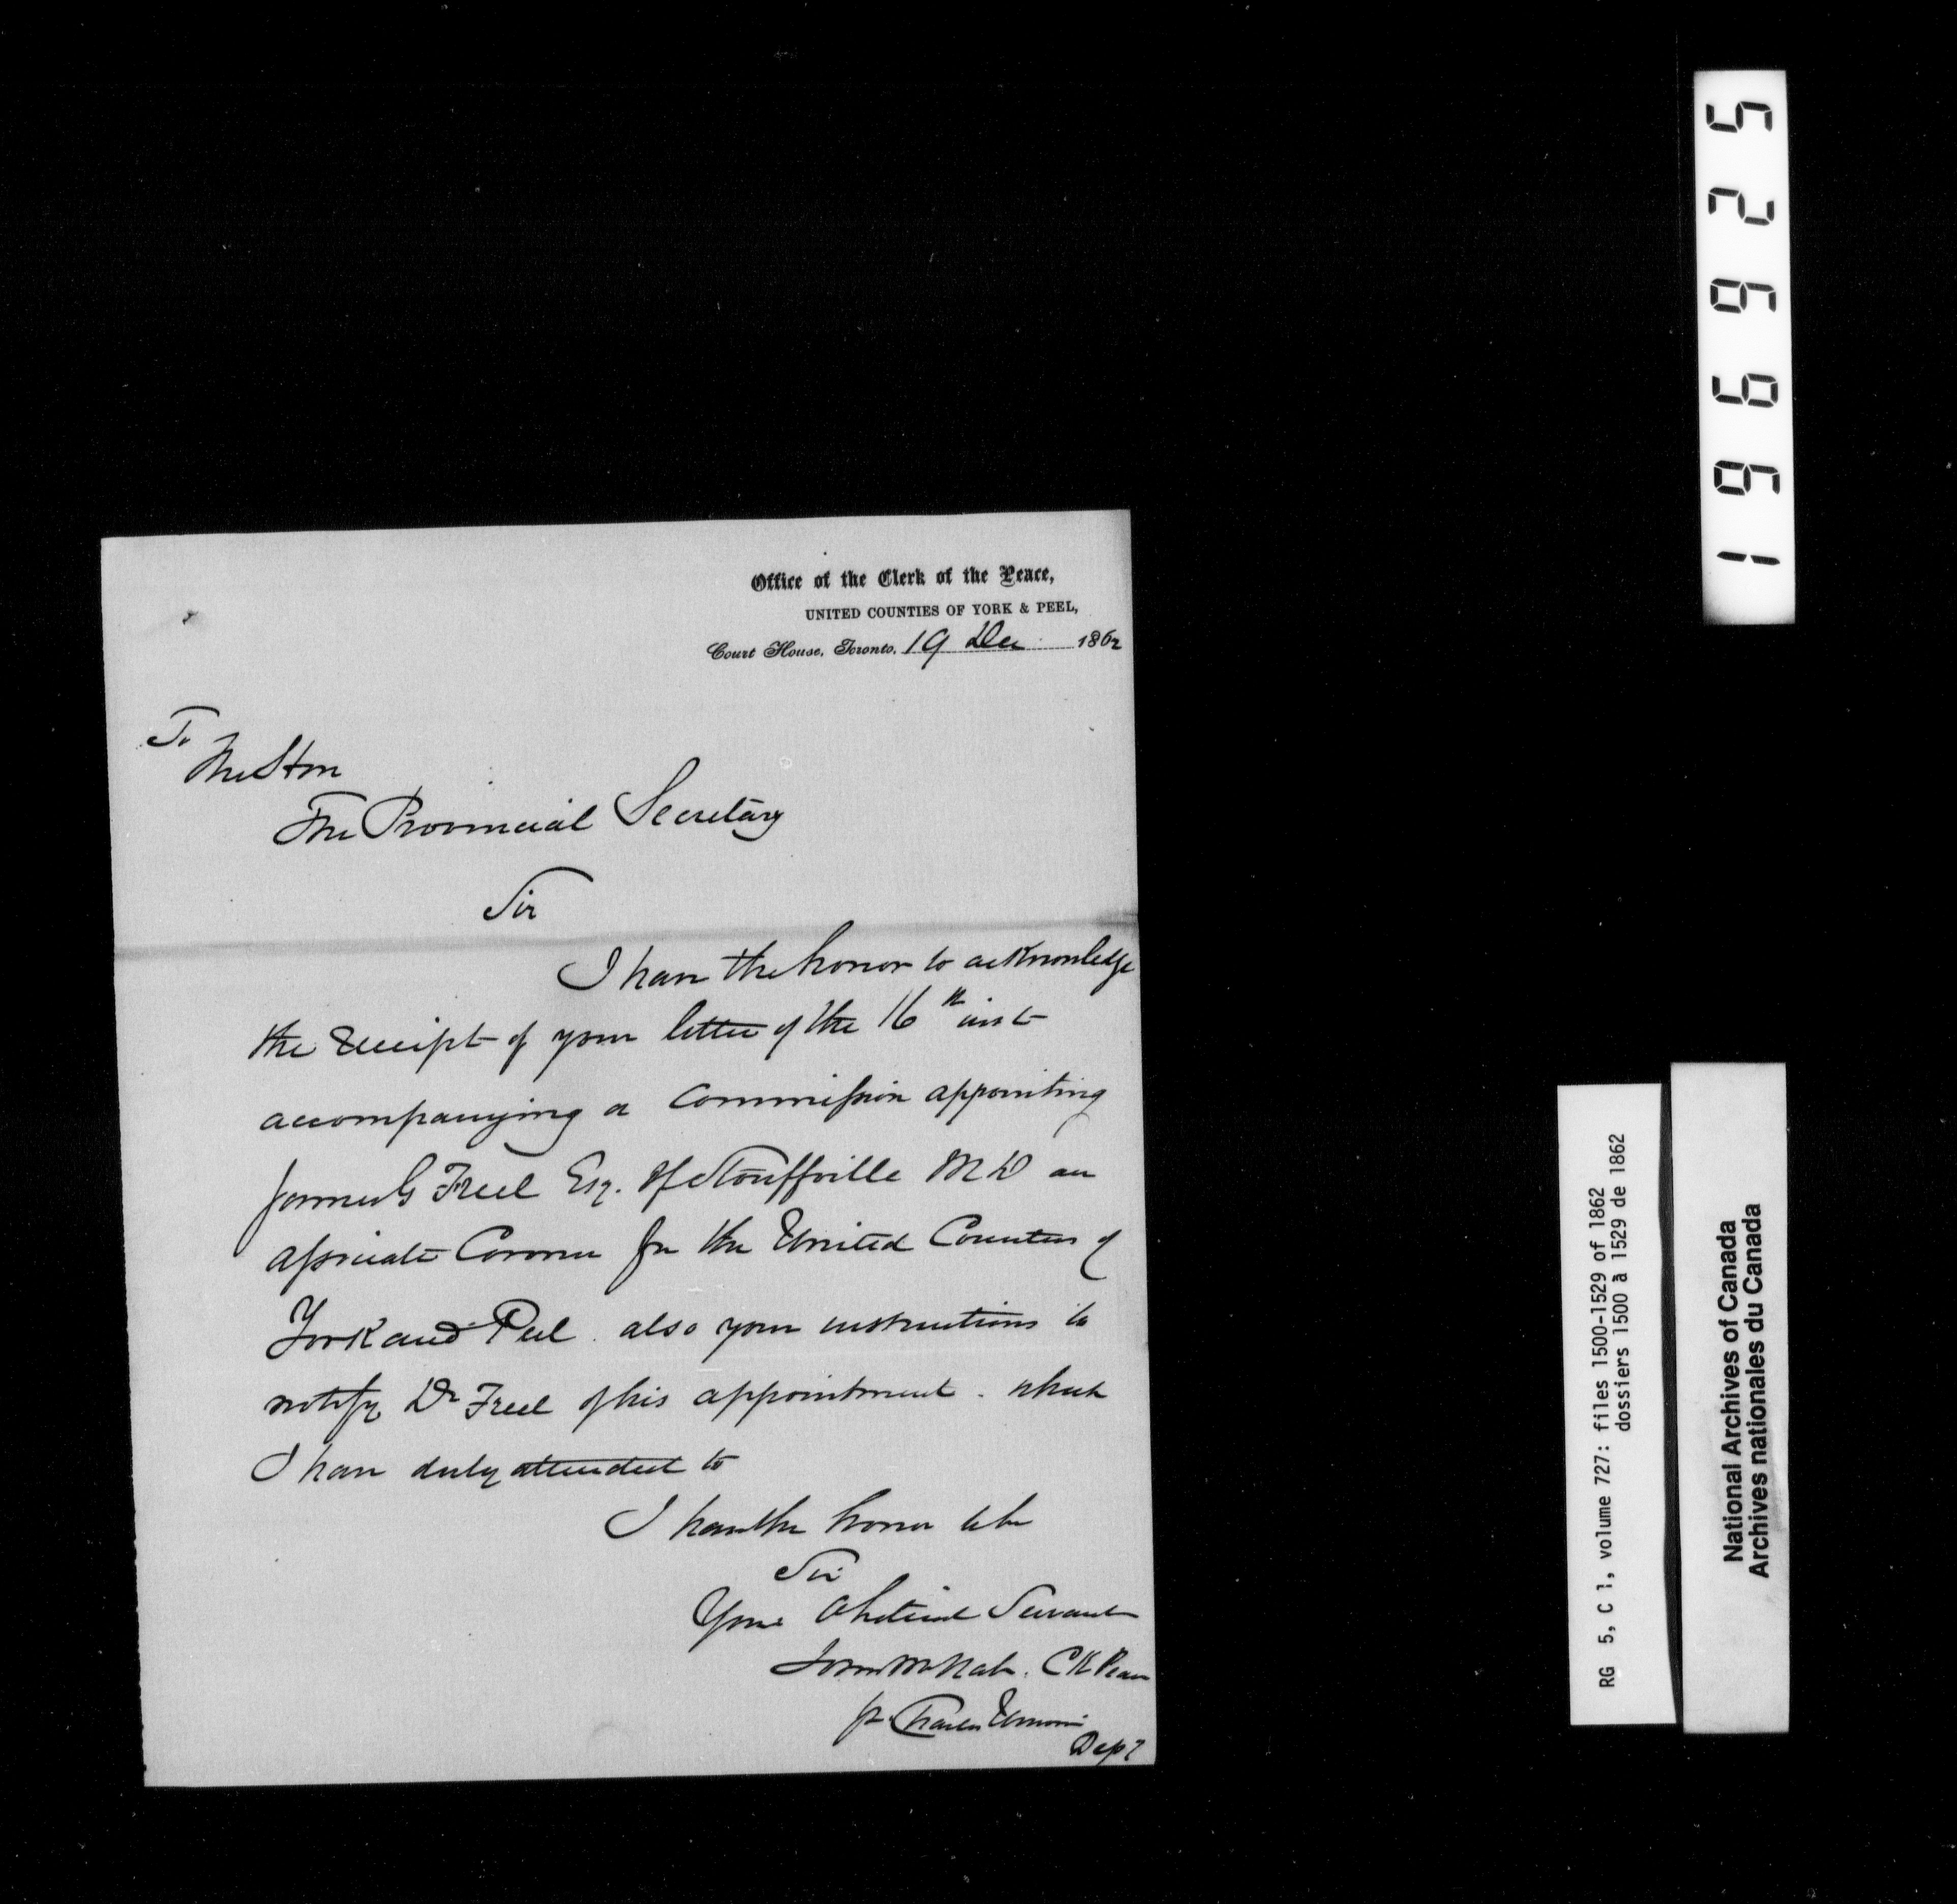 Office of the Clerk of the Peace,
UNITED COUNTIES OF YORK & PEEL,
Court House, Toronto, 19 Dec 1862
To
The Hon
The Provincial Secretary
Sir
I have the honor to acknowledge
the receipt of your letter of the 16th inst
accompanying a Commission appointing
James G Freel Esq. of Stouffville M D an
associate Coroner for the United Counties of
York and Peel. also your instructions to
notify Dr Freel of his appointment. which
I have duly attended to
I have the honor to be
Sir
Your Obedient Servant
John McNab. Ck Peace
pr. Charles
Depy
196925
RG 5, C 1, volume 727: files 1500-1529 of 1862
dossiers 1500 à 1529 de 1862
National Archives of Canada
Archives nationales du Canada